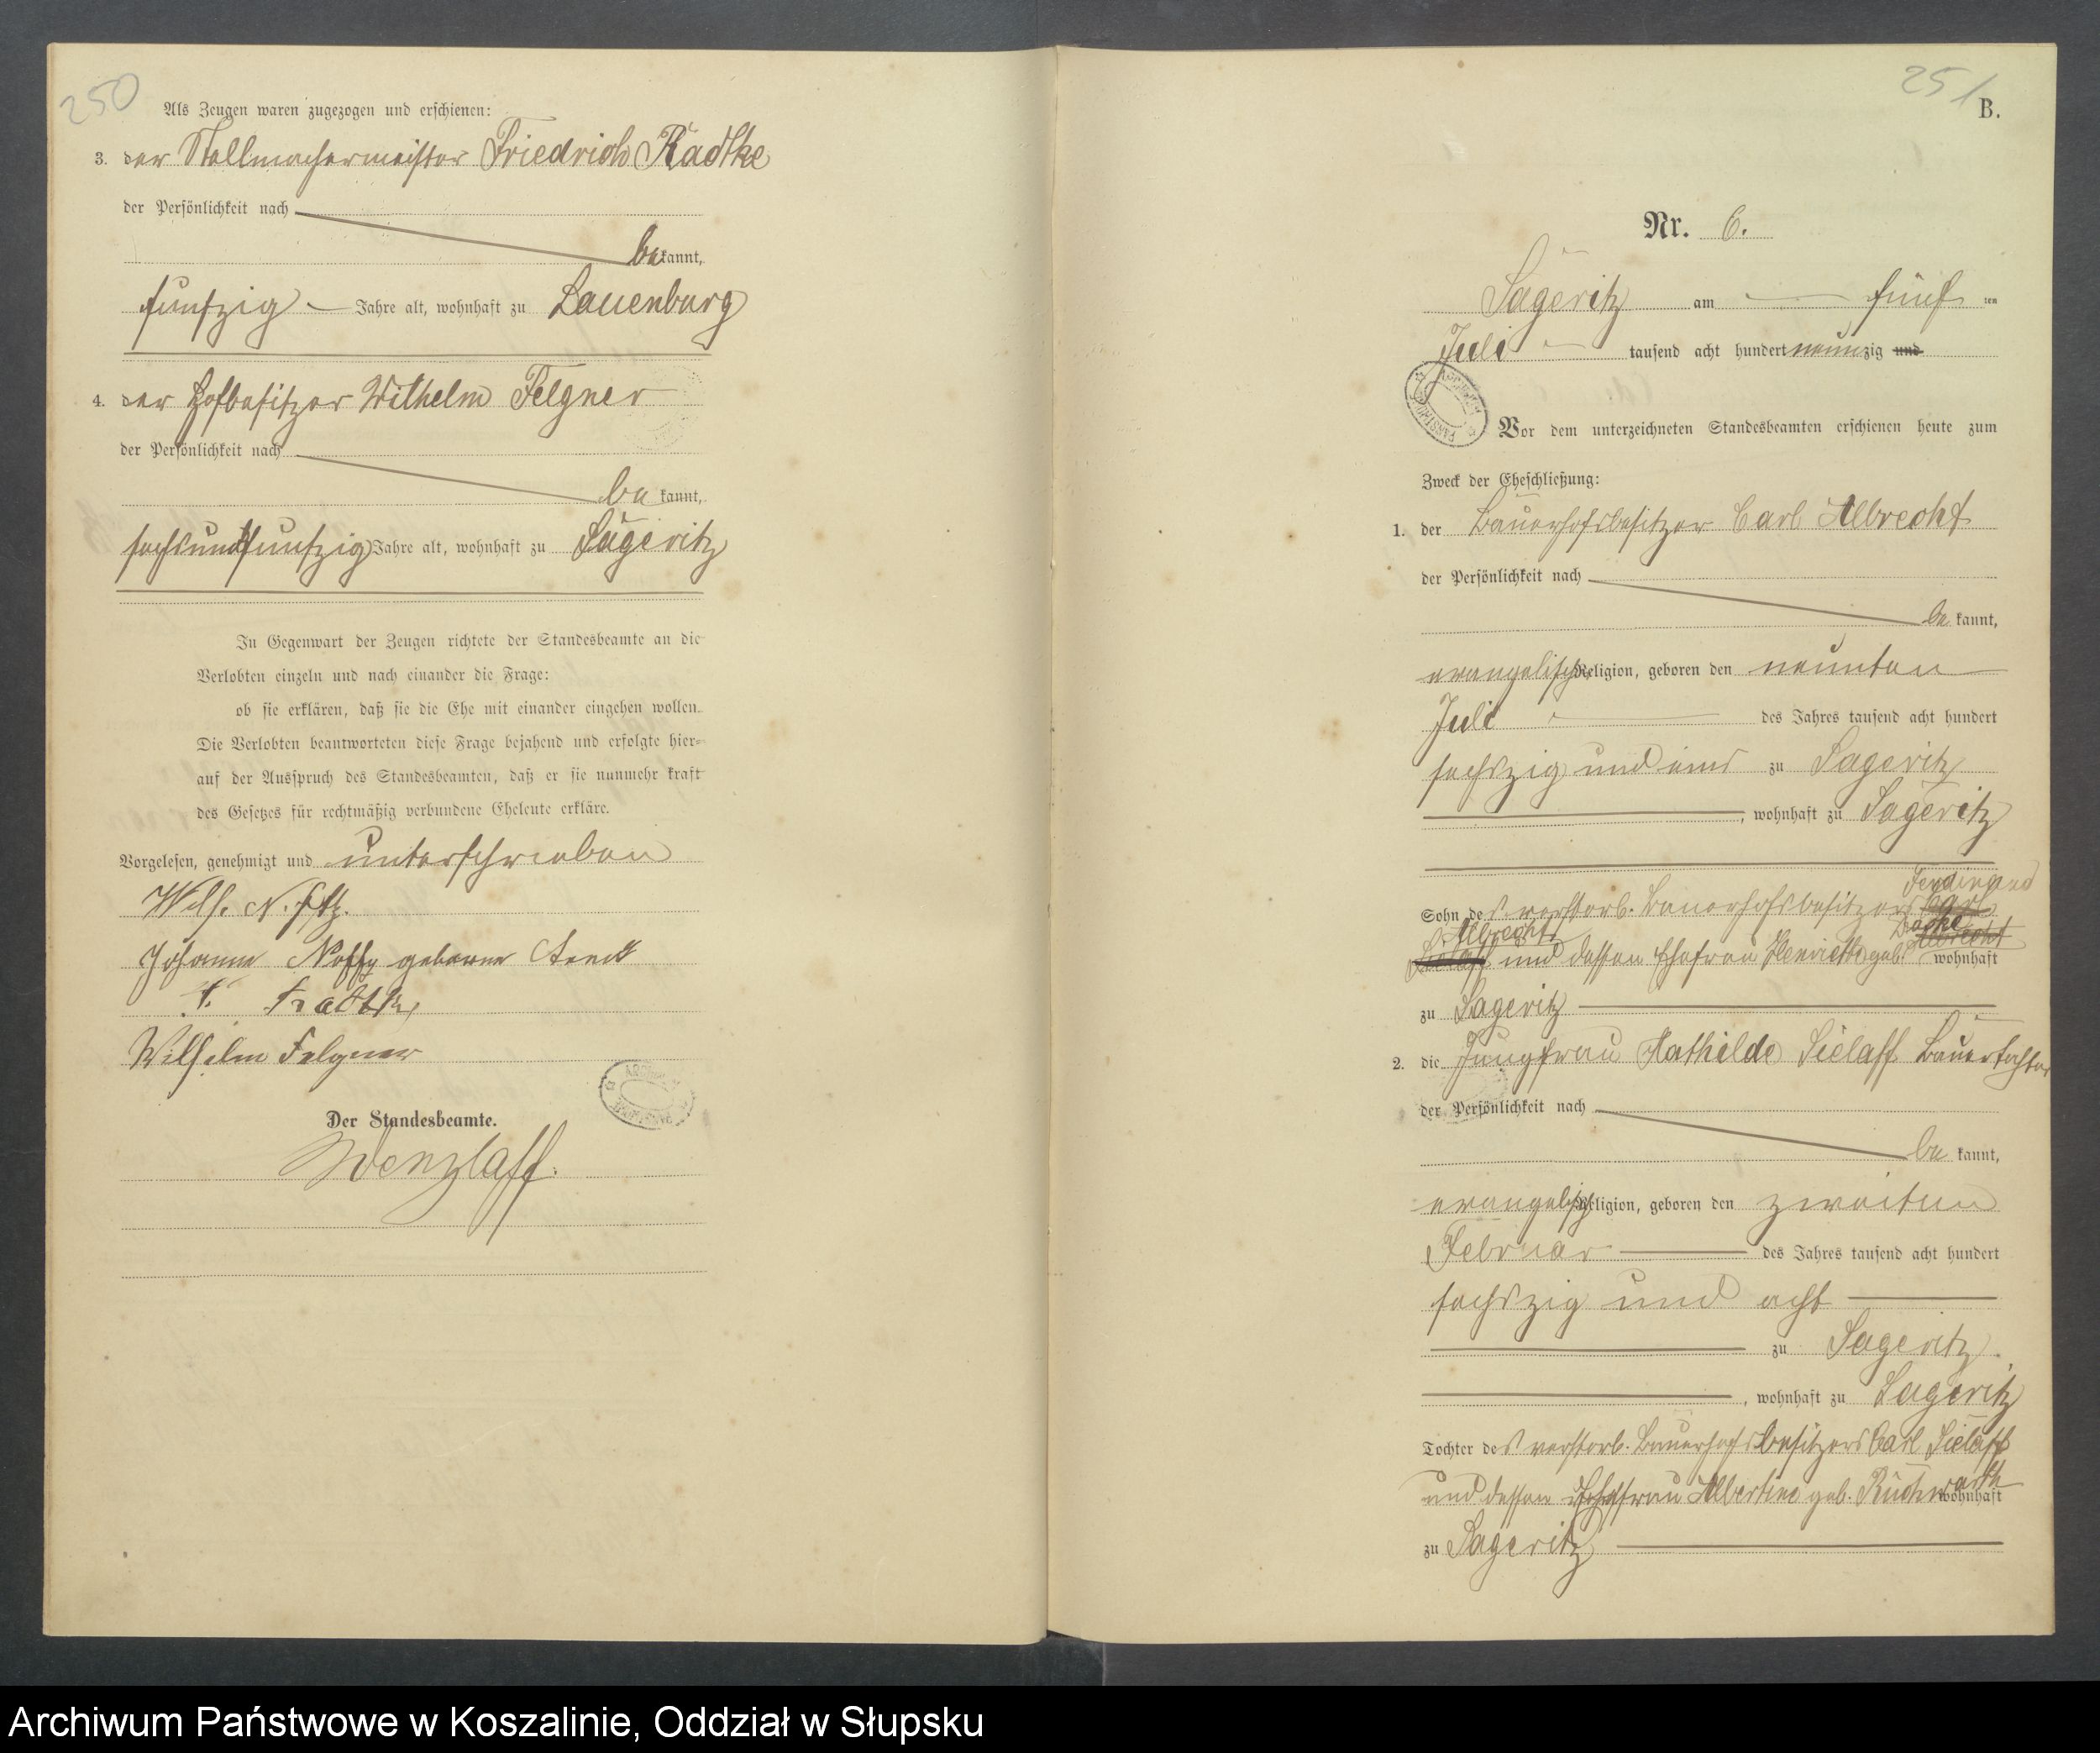 250
Als Zeugen waren zugezogen und erschienen:
3. der Stellmachermeister Friedrich Radtke
der Persönlichkeit nach
bekannt,
funfzig Jahre alt, wohnhaft zu Lauenburg
4. der Hofbesitzer Wilhelm Felgner
der Persönlichkeit nach
be kannt,
sechsundfunfzig Jahre alt, wohnhaft zu Sageritz
In Gegenwart der Zeugen richtete der Standesbeamte an die
Verlobten einzeln und nach einander die Frage:
ob sie erklären, daß sie die Ehe mit einander eingehen wollen.
Die Verlobten beantworteten diese Frage bejahend und erfolgte hier-
auf der Ausspruch des Standesbeamten, daß er sie nunmehr kraft
des Gesetzes für rechtmäßig verbundene Eheleute erkläre.
Vorgelesen, genehmigt und unterschrieben
Wilh.
Johanne geborene
F. Radtke
Wilhelm Felgner
Der Standesbeamte.
Wenzlaff.
251
B.
Nr. 6.
Sageritz am fünf ten
Juli tausend acht hundert neunzig und
Vor dem unterzeichneten Standesbeamten erschienen heute zum
Zweck der Eheschließung:
1. der Bauerhofsbesitzer Carl Albrecht
der Persönlichkeit nach
be kannt,
evangelischer Religion, geboren den neunten
Juli des Jahres tausend acht hundert
sechszig und eins zu Sageritz
, wohnhaft zu Sageritz
Ferdinand
Sohn des verstorb. Bauerhofsbesitzers Carl
Albrecht
Sielaff und dessen Ehefrau Henriette geb. Albrecht wohnhaft
zu Sageritz
2. die Jungfrau Mathilde Sielaff Bauertochter
der Persönlichkeit nach
be kannt,
evangelisch Religion, geboren den zweiten
Februar des Jahres tausend acht hundert
sechszig und acht
zu Sageritz.
, wohnhaft zu Sageritz
Tochter des verstorb. Bauerhofsbesitzers Carl Sielaff
und dessen Ehefrau Albertine geb. wohnhaft
zu Sageritz
Archiwum Państwowe w Koszalinie, Oddział w Słupsku